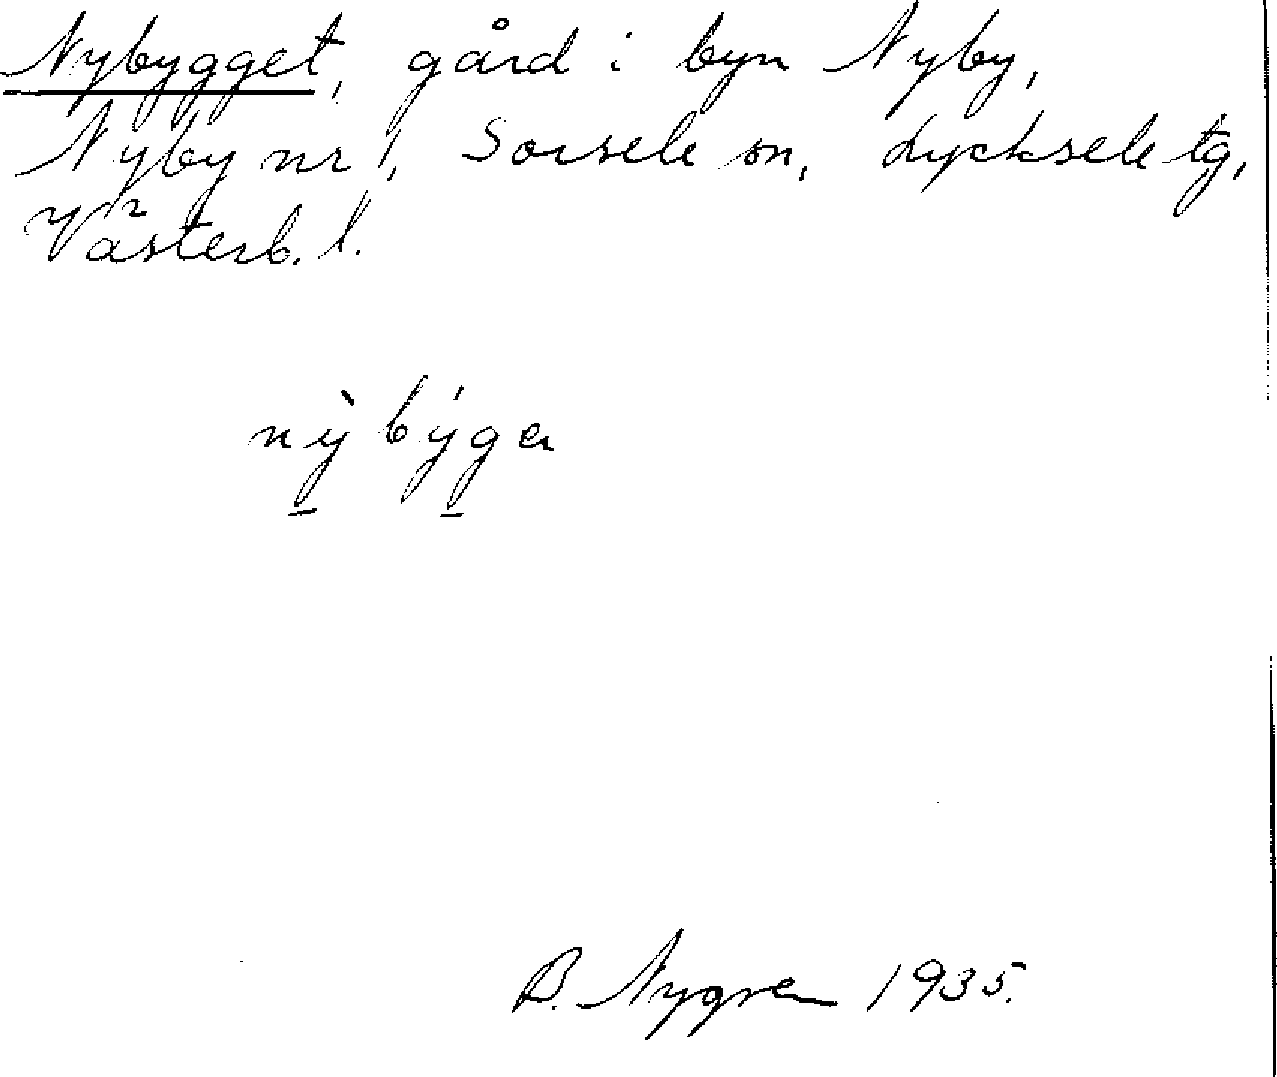 Nybygget, gård i byn Nyby,
Nyby nr 1, Sorsele sn, Lycksele tg,
Västerb. l.
nỳ býga
B. Nygren 1935.